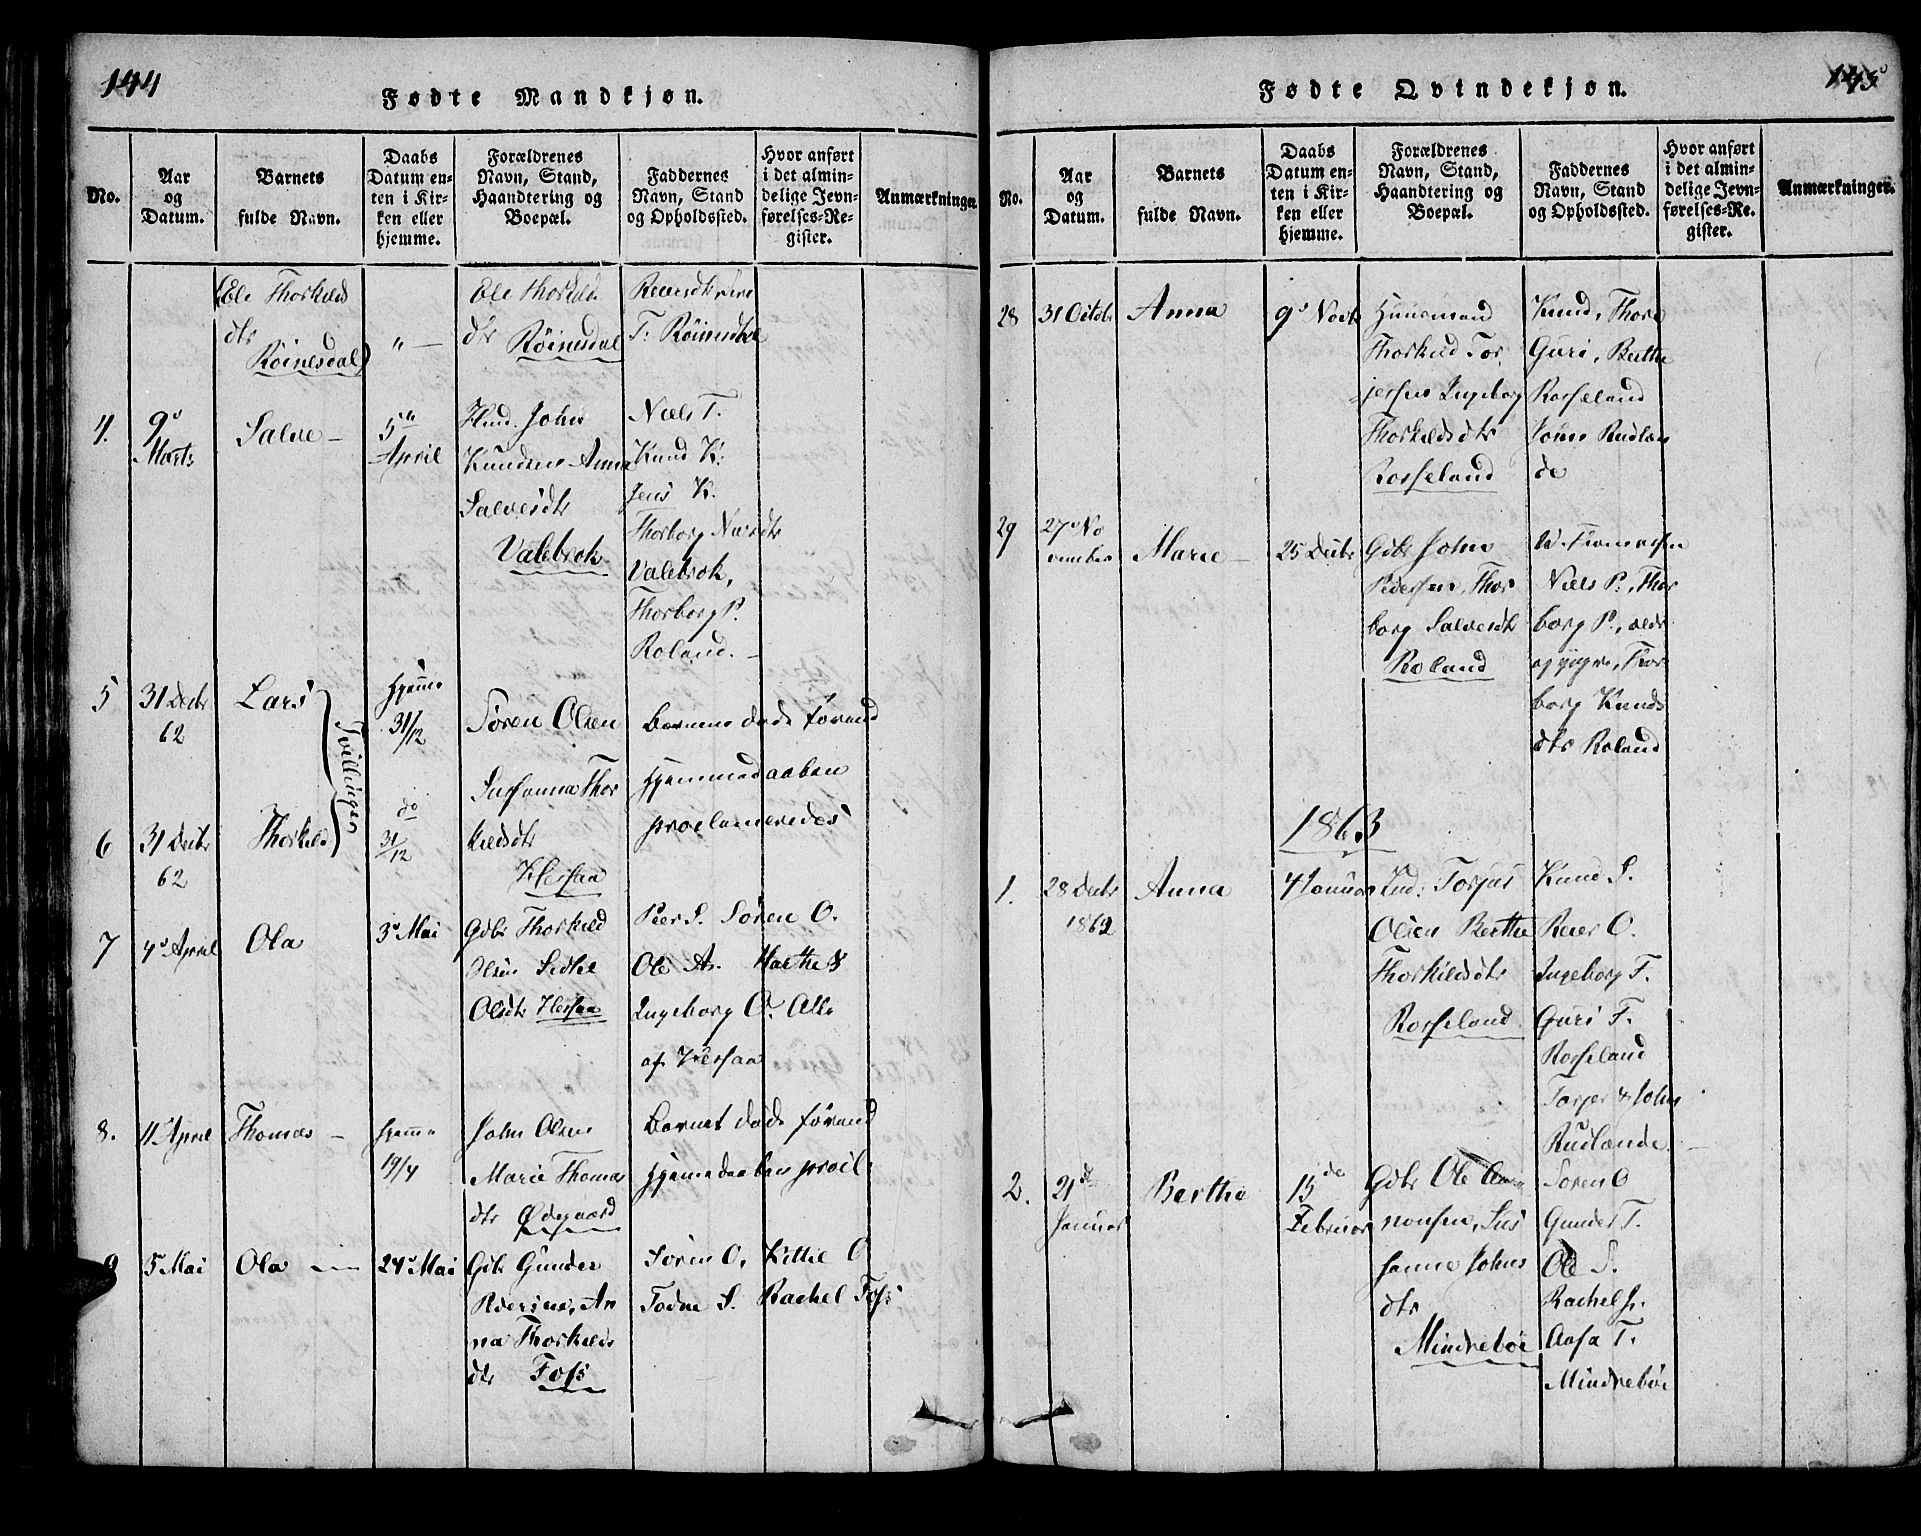 144
Fødte Mandkjøn.
No.
Aar
og
Datum.
Barnets
fulde Navn.
Daabs
Datum en-
ten i Kir-
ken eller
hjemme.
Forældrenes
Navn, Stand,
Haandtering og
Boepæl.
Faddernes
Navn, Stand
og Opholdssted.
Hvor anført
i det almin-
delige Jevn-
førelses-Re-
gister.
Anmærkninger.
(Ole Thorkilds
dtr
Røinesdal)
" —
Ole Thorkilds
dtr
Røinesdal
T: Røinesdal
4.
9de
Marts
Salve —
5te
April
Hmd. John
Knudsen Anna
Salvesdtr
Valebrok
Niels T.
Knud K:
Jens K.
Thorborg Nielsdtr
Valebrok,
Thorborg P.
Roland. —
5
31 Decbr
62
Lars
Tvillinger
Hjemme
31/12
Søren Olsen
Børnene døde førend
6
31 Decbr
62
Thorkild
do
31/12
Susanna Thor
kildsdtr
Hersaa
Hjemmedaaben
proclameredes
7
4de April
Ola
3de Mai
Gdbr Thorkild
Olsen Sidsel
Olsdtr Hersaa
Peer S. Søren O.
Ole A. Marthe S
Ingeborg O. Alle
af Hersaa
8.
11 April
Thomas —
Hjemme
19/4
John Olsen
Marie Thomas
dtr Ødegaard
Barnet døde førend
Hjemedaaben procl.
9
5 Mai
Ola —
24de Mai
Gdbr Gunder
Pedersen, An
na Thorkilds
dtr Foss
Søren O, Kittil O
Todne S. Rachel Foss
145
Fødte Qvindekjøn.
No.
Aar
og
Datum.
Barnets
fulde Navn.
Daabs
Datum en-
ten i Kir-
ken eller
hjemme.
Forældrenes
Navn, Stand,
Haandtering og
Boepæl.
Faddernes
Navn, Stand
og Opholdssted.
Hvor anført
i det almin-
delige Jevn-
førelses-Re-
gister.
Anmærkninger.
28
31 Octobr
Anna
9de Novbr
Huusmand
Thorkild Tor
jersen Ingeborg
Thorkildsdtr
Rosseland
Knud, Thore
Guri, Berthe
Rosseland
Johns Rudlan
de
29
27de No
vember
Marie —
25 Decbr
Gdbr John
Pedersen, Thor
borg Salvesdtr
Roland
Niels P., Thor
borg P., ældr
og yngre, Thor
borg Knuds
dtr Roland
1863
1.
28 Decbr
1862
Anna
4 Januar
Ind: Torjus
Olsen Berthe
Thorkildsdtr
Rosseland
Knud S.
Reier O.
Ingeborg T.
Guri T.
Rosseland
Torjer & Johs
Rudlande. —
2.
21de
Januar
Berthe
15de
Februar
Gdbr Ole Aan
nonsen, Sus
sanne Johns
dtr
Mindrebøe
Søren O
Gunder T.
Ole S.
Rachel J.
Aasa T.
Mindrebøe